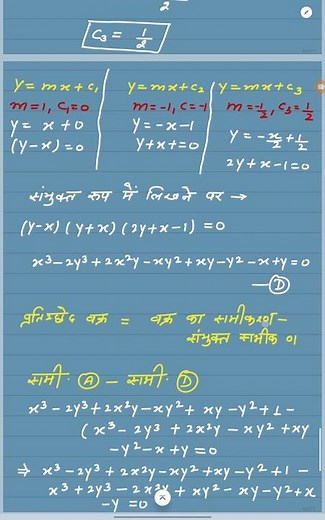 2
C₃ = 1/2
y = mx+c₁
m=1, c₁=0
y = x+0
(y-x)=0
y=mx+c₂
m=-1, c=-1
y=-x-1
y+x+=0
y=mx+c₃
m=-1/2, c₃=1/2
y=-x/2+1/2
2y+x-1=0
संयुक्त रूप में लिखने पर →
(y-x)(y+x)(2y+x-1)=0
x³-2y³+2x²y-xy²+xy-y²-x+y=0
-Ⓓ
प्रतिच्छेद वक्र = वक्र का समीकरण-
संयुक्त समीक०
समी. Ⓐ - समी. Ⓓ
x³-2y³+2x²y-xy²+xy-y²+1-
(x³-2y³+2x²y-xy²+xy
-y²-x+y=0
⇒ x³-2y³+2x²y-xy²+xy-y²+1-
x³+2y³-2x²y+xy²-xy-y²+x
-y=0